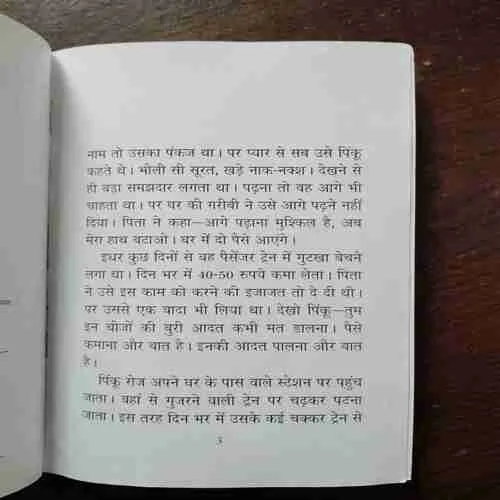 नाम तो उसका पंकज था। पर प्यार से सब उसे पिंकू
कहते थे। भोली सी सूरत, खड़े नाक-नक्श। देखने से
ही बड़ा समझदार लगता था। पढ़ना तो वह आगे भी
चाहता था। पर घर की गरीबी ने उसे आगे पढ़ने नहीं
दिया। पिता ने कहा—आगे पढ़ाना मुश्किल है, अब
मेरा हाथ बटाओ। घर में दो पैसे आएंगे।
इधर कुछ दिनों से वह पैसेंजर ट्रेन में गुटखा बेचने
लगा था। दिन भर में 40-50 रुपये कमा लेता। पिता
ने उसे इस काम को करने की इजाजत तो दे दी थी।
पर उससे एक वादा भी लिया था। देखो पिंकू—तुम
इन चीजों की बुरी आदत कभी मत डालना। पैसे
कमाना और बात है। इनकी आदत पालना और बात
है।
पिंकू रोज अपने घर के पास वाले स्टेशन पर पहुंच
जाता। वहां से गुजरने वाली ट्रेन पर चढ़कर पटना
जाता। इस तरह दिन भर में उसके कई चक्कर ट्रेन से
3